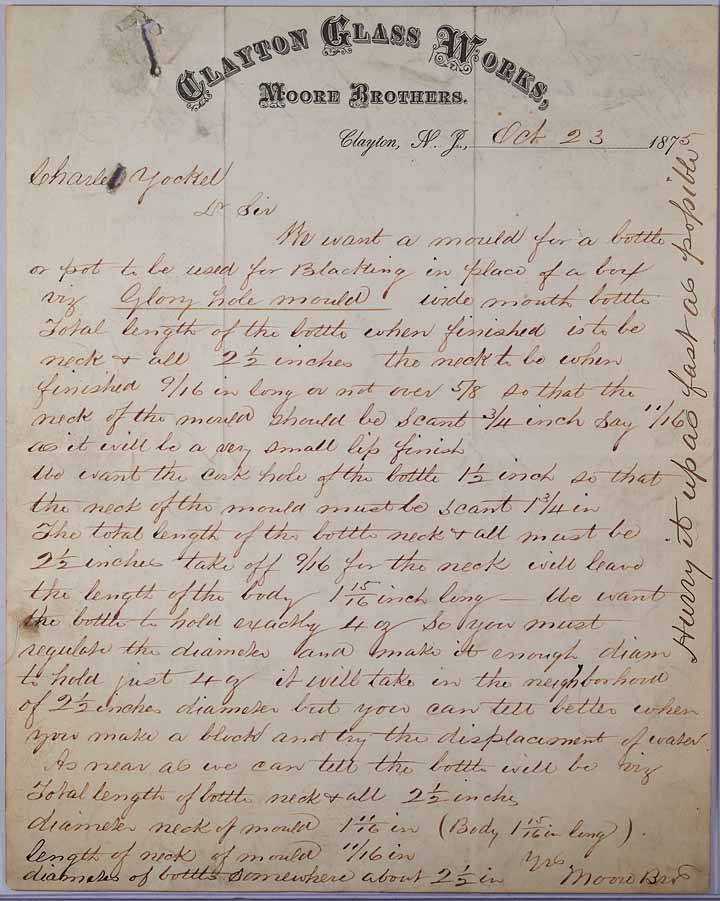 CLAYTON GLASS WORKS,
MOORE BROTHERS.
Clayton, N. J., Oct. 23 1875
Charles Yockel
Dr Sir
We want a mould for a bottle
or pot to be used for Blacking in place of a box
viz Glory hole mould wide mouth bottle
Total length of the bottle when finished is to be
neck & all 2 1/2 inches the neck to be when
finished 9/16 in long or not over 5/8 so that the
neck of the mould should be scant 3/4 inch say 11/16
as it will be a very small lip finish
We want the cork hole of the bottle 1 1/2 inch so that
the neck of the mould must be scant 1 3/4 in
The total length of the bottle neck & all must be
2 1/2 inches take off 9/16 for the neck will leave
the length of the body 1 15/16 inch long — We want
the bottle to hold exactly 4 oz so you must
regulate the diameter and make it enough diam
to hold just 4 oz it will take in the neighborhood
of 2 1/2 inches diameter but you can tell better when
you make a block and try the displacement of water.
As near as we can tell the bottle will be viz
Total length of bottle neck & all 2 1/2 inches
diameter neck of mould 1 11/16 in (Body 1 15/16 in long).
length of neck of mould 11/16 in
diameter of bottle somewhere about 2 1/2 in
Yrs
Moore Bros
Hurry it up as fast as possible